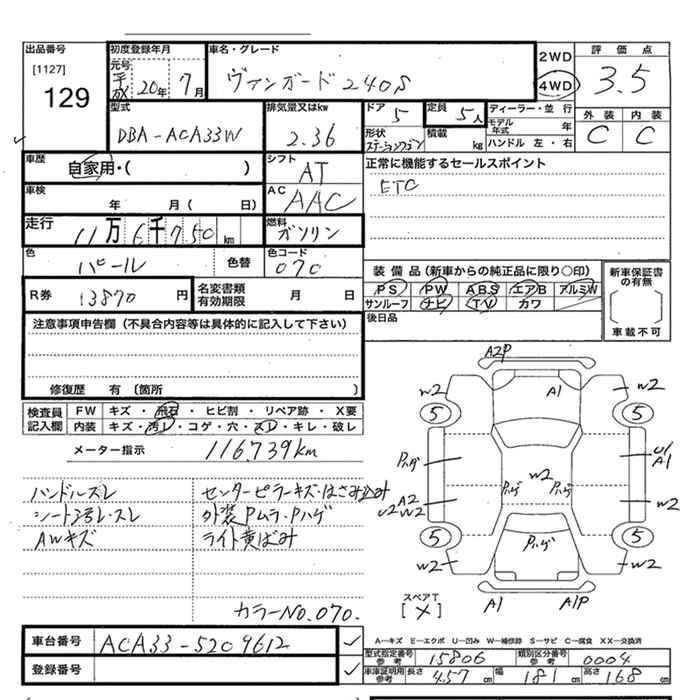 出品番号
[1127]
129
初度登録年月
元号
平成 20年 7月
車名・グレード
ヴァンガード240S
2WD
4WD
評価点
3.5
外装 内装
C C
型式
DBA-ACA33W
排気量又はkw
2.36
ドア 5
形状
ステーションワゴン
定員 5人
積載 kg
ディーラー・並行
モデル年式 年
ハンドル 左・右
車歴
自家用・( )
シフト
AT
正常に機能するセールスポイント
ETC
車検
年 月( 日)
AC
AAC
走行
11万6千750km
燃料
ガソリン
色
パール
色替
色コード
070
装備品(新車からの純正品に限り○印)
PS PW ABS エアB アルミW
サンルーフ ナビ TV カワ
新車保証書の有無
[ ]
車載不可
R券 13870円
名変書類有効期限
月 日
後日品
注意事項申告欄(不具合内容等は具体的に記入して下さい)
修復歴 有 〔箇所 〕
検査員記入欄
FW キズ・飛石・ヒビ割・リペア跡・X要
内装 キズ・汚レ・コゲ・穴・スレ・キレ・破レ
メーター指示
116,739km
ハンドルスレ
シート汚レ・スレ
AWキズ
センターピラーキズ・はさみ込み
外装Pムラ・Pハゲ
ライト黄ばみ
カラーNO.070.
A2P
A1
W2
W2
5
5
Pハゲ
U1
A1
W2
Pハゲ
Pハゲ
A2
U2W2
W2
5
5
Pハゲ
W2
W2
スペアT
[×]
A1
A1P
車台番号
ACA33-5209612
登録番号
A―キズ E―エクボ U―凹み W―補修跡 S―サビ C―腐食 XX―交換済
型式指定番号参考
15806
類別区分番号参考
0004
車庫証明用参考
長さ 457cm 幅 181cm 高さ 168cm